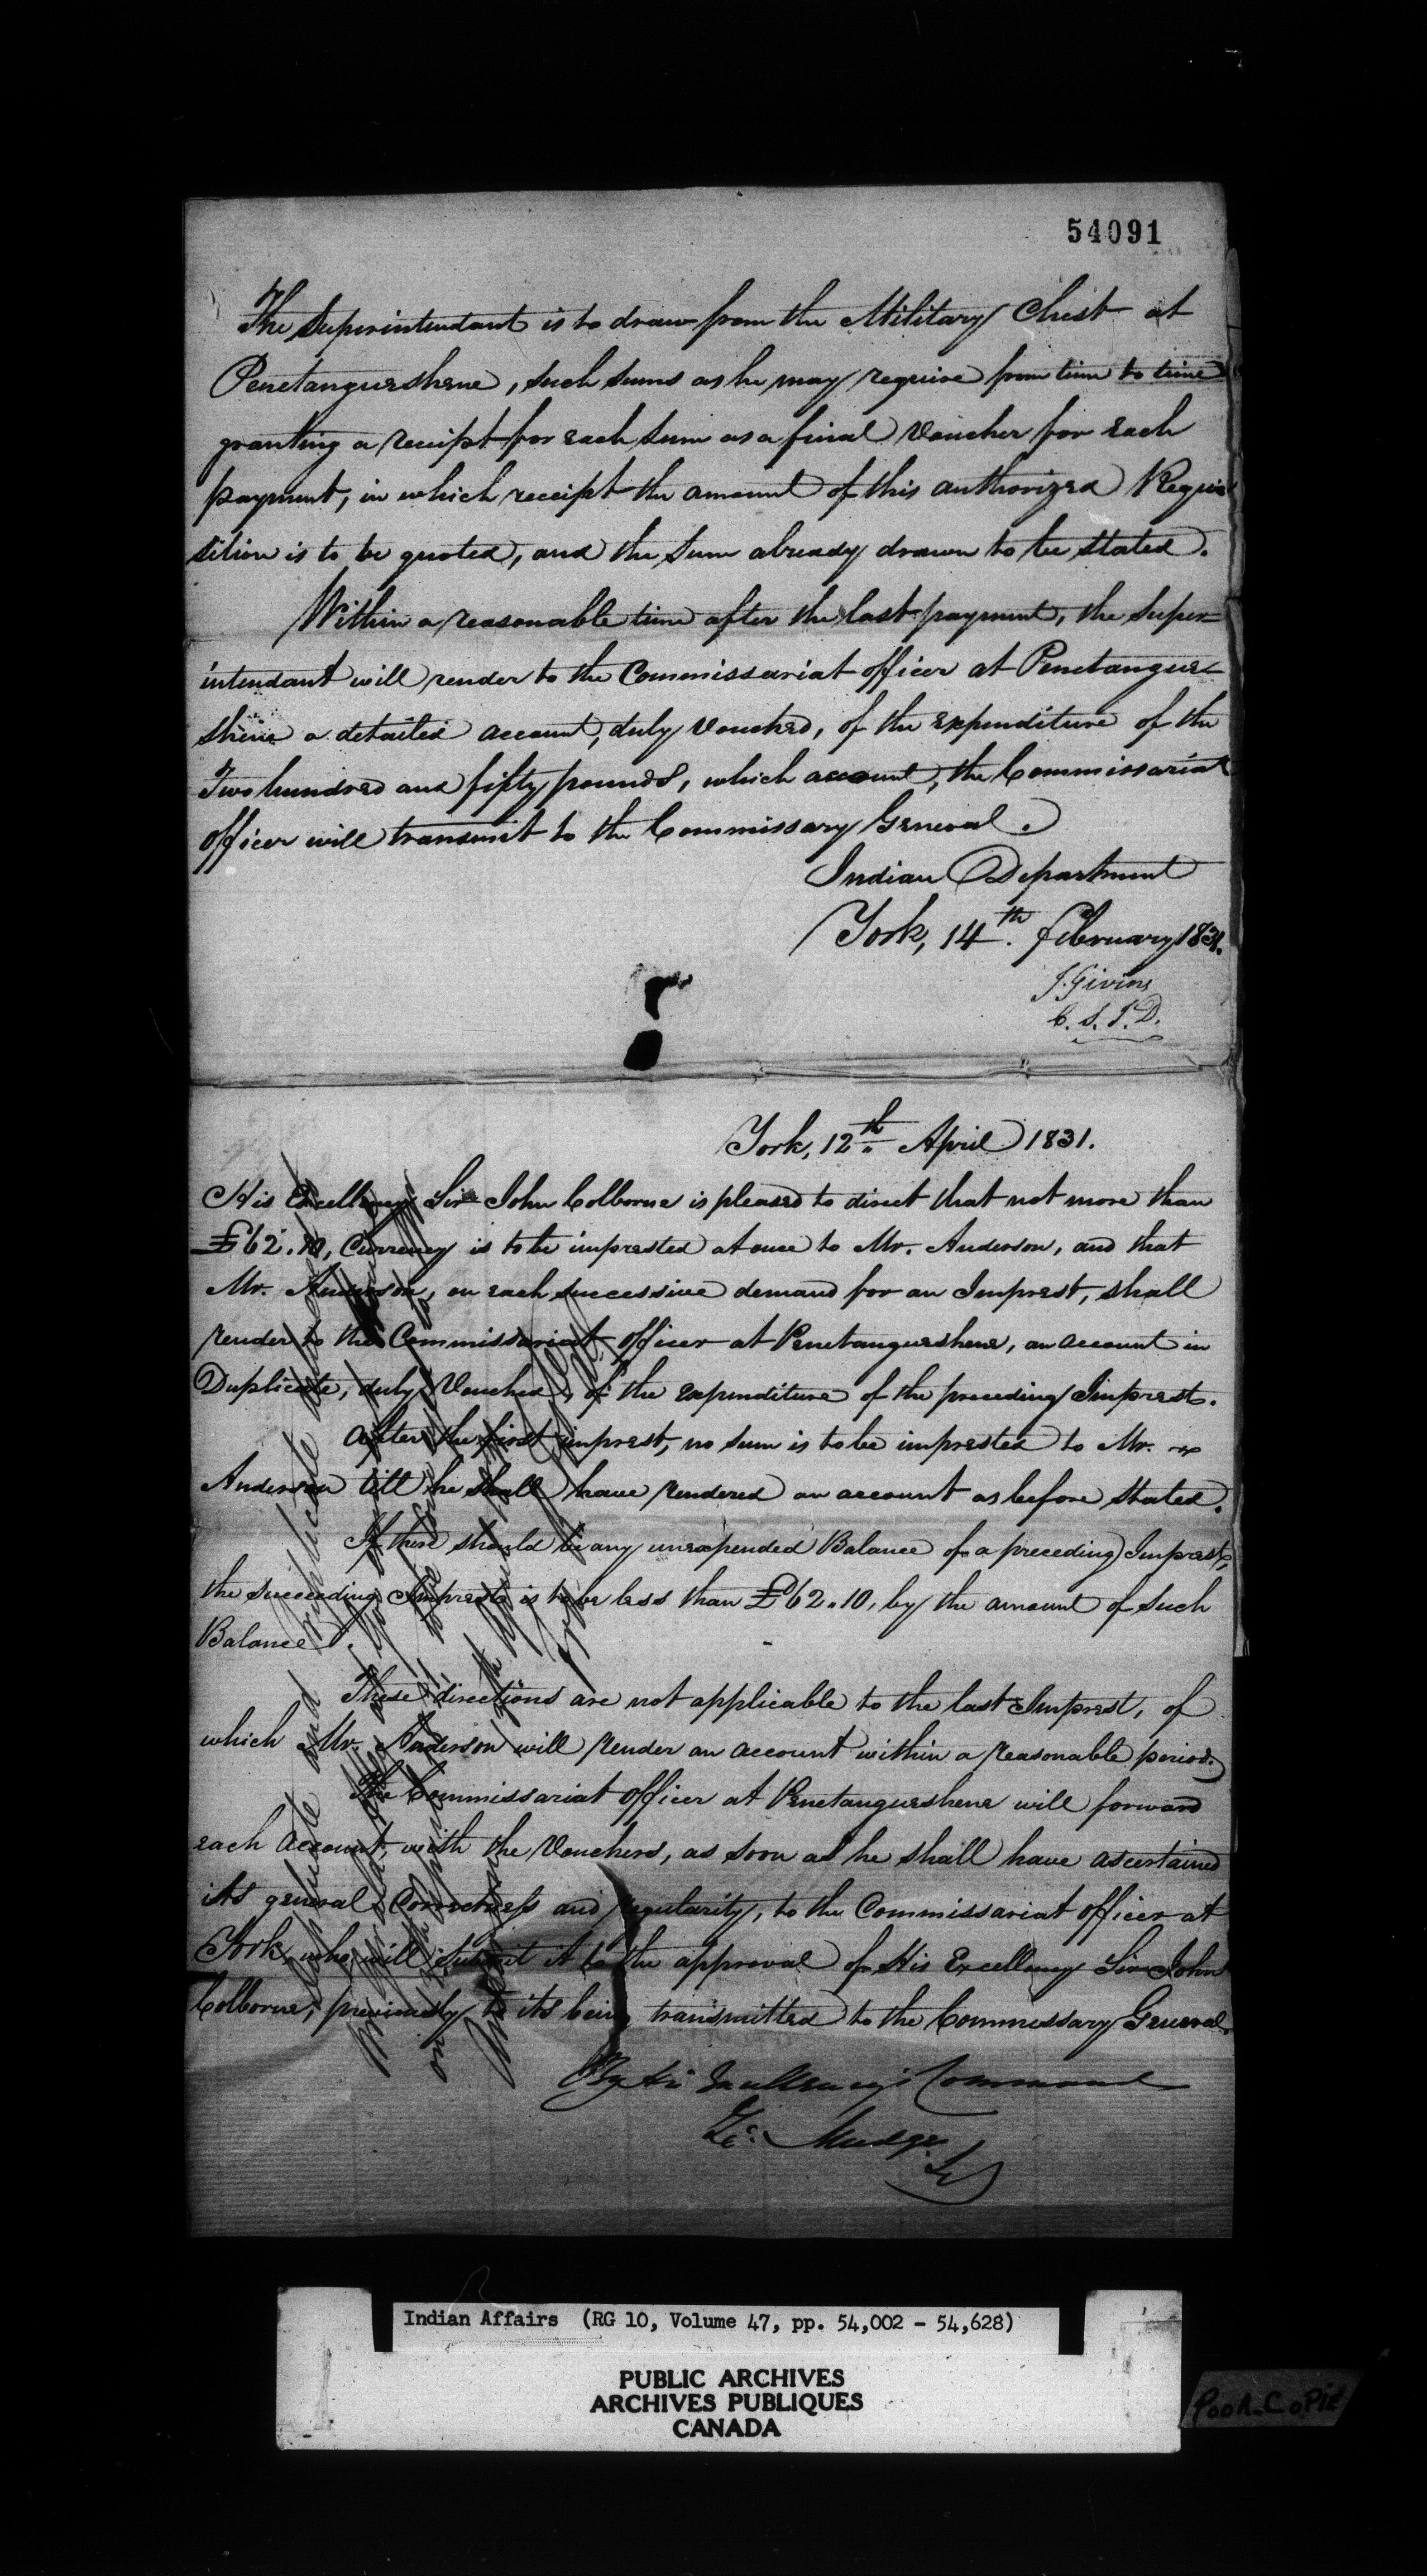 54091
The Superintendant is to draw from the Military Chest at
Penetanguishene, such sums as he may require from time to time
granting a receipt for each sum as a final Voucher for each
payment, in which receipt the amount of this authorized Requi
sition is to be quoted, and the sum already drawn to be stated.
Within a reasonable time after the last payment, the Super-
intendant will render to the Commissariat officer at Penetangue-
shene a detailed account, duly vouched, of the expenditure of the
Two hundred and fifty pounds, which account, the Commissariat
officer will transmit to the Commissary General.
Indian Department
York, 14th. February 1831.
J. Givins
C. S. I. D.
York, 12th April 1831.
His Excellency Sir John Colborne is pleased to direct that not more than
£62.10, Currency is to be imprested at once to Mr. Anderson, and that
Mr. Anderson, on each successive demand for an Imprest, shall
render to the Commissariat officer at Penetangueshene, an account in
Duplicate, duly Vouched, of the expenditure of the preceding Imprest.
After the first imprest, no sum is to be imprested to Mr.
Anderson till he shall have rendered an account as before stated.
If there should be any unexpended Balance of a preceding Imprest,
the succeeding Imprest is to be less than £62.10, by the amount of such
Balance.
These directions are not applicable to the last Imprest, of
which Mr. Anderson will render an account within a reasonable period.
The Commissariat officer at Penetangueshene will forward
each account, with the Vouchers, as soon as he shall have ascertained
its general correctness and regularity, to the Commissariat officer at
York, who will submit it to the approval of His Excellency Sir John
Colborne, previously to its being transmitted to the Commissary General.
By His Excellency's Command
Z. Mudge
duplicate and triplicate
Indian Affairs (RG 10, Volume 47, pp. 54,002 - 54,628)
PUBLIC ARCHIVES
ARCHIVES PUBLIQUES
CANADA
POOR COPIE